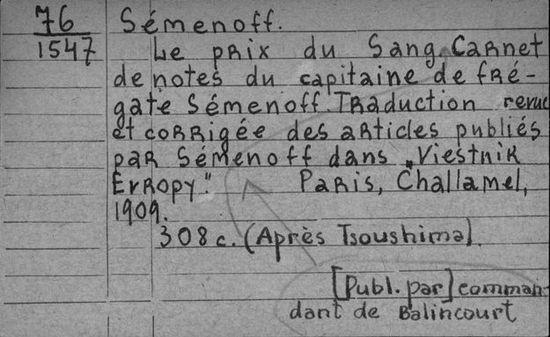 76
1547
Sémenoff.
Le prix du Sang. Carnet
de notes du capitaine de fré-
gate Sémenoff. Traduction revue
et corrigée des articles publiés
par Sémenoff dans „Viestnik
Evropy." Paris, Challamel,
1909.
308 c. (Après Tsoushima).
[Publ. par] comman-
dant de Balincourt